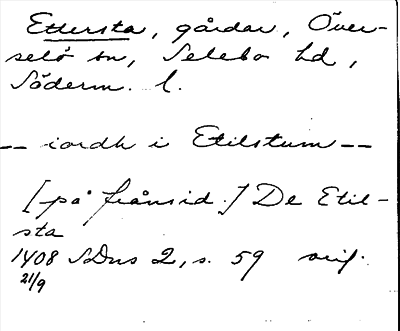 Ettersta, gårdar, Över-
selö sn, Selebo hd,
Söderm. l.
-- iordh i Etilstum --
[på frånsid.] De Etil-
sta
1408 SDns 2, s. 59 orig.
21/9